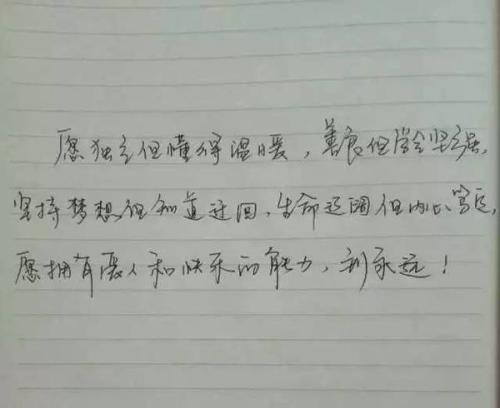 愿独立但懂得温暖，善良但学会坚强，
坚持梦想但知道迂回，生命辽阔但内心笃定，
愿拥有爱人和快乐的能力，到永远！